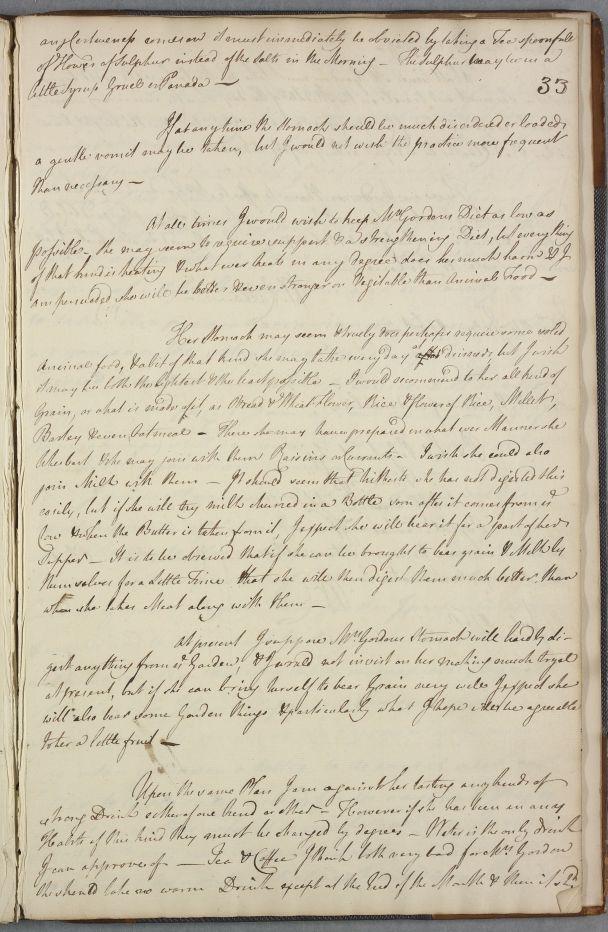 any Costiveness comes on it must immediately be obviated by taking a Tea spoonfull
of Flower of Sulphur instead of the Salts in the Morning – The Sulphur may be in a
little Syrup Gruel or Panada –
33
If at any time the Stomach should be much disordered or loaded,
a gentle vomit may be taken, but I would not wish the practice more frequent
than necessary –
At all times I would wish to keep Mrs Gordons Diet as low as
possible – she may seem to require support & a strengthening Diet, but every thing
of that kind is heating & what ever heats in any degree does her much harm & I
am persuaded she will be better & even stronger on Vegitable than Animal Food –
Her Stomach may seem & truely does perhaps require some solid
Animal food, & a bit of that kind she may take every day at dinner, but I wish
it may be both the lightest & the least possible – I would recommend to her all kind of
Grain, or what is made of it, as Bread & Wheat flower, Rice & flower of Rice, Millet,
Barley & even Oatmeal – These she may have prepared in what ever Manner she
likes best & she may join with them Raisins or Currants – I wish she could also
join Milk with them – It should seem that hitherto she has not digested this
easily, but if she will try milk churned in a Bottle soon after it comes from ye
Cow & when the Butter is taken from it, I expect she will bear it for a part of her
Supper – It is to be observed that if she can be brought to bear grain & Milk by
themselves for a little Time that she will then digest them much better, than
when she takes Meat along with them –
At present I suppose Mrs Gordons Stomach will hardly di-
gest any thing from ye Garden & I would not insist on her making much tryal
at present, but if she can bring herself to bear Grain very well I expect she
will also bear some Garden things & particularly what I hope will be agreeable
to her a little fruit –
Upon the same Plan I am against her tasting any kinds of
strong Drink either of one kind or other – However if she has been in any
Habits of this kind they must be changed by degrees – Water is the only drink
I can approve of – Tea & Coffee I think both very bad for Mrs Gordon
she should take no warm Drink except at the End of the Month & then